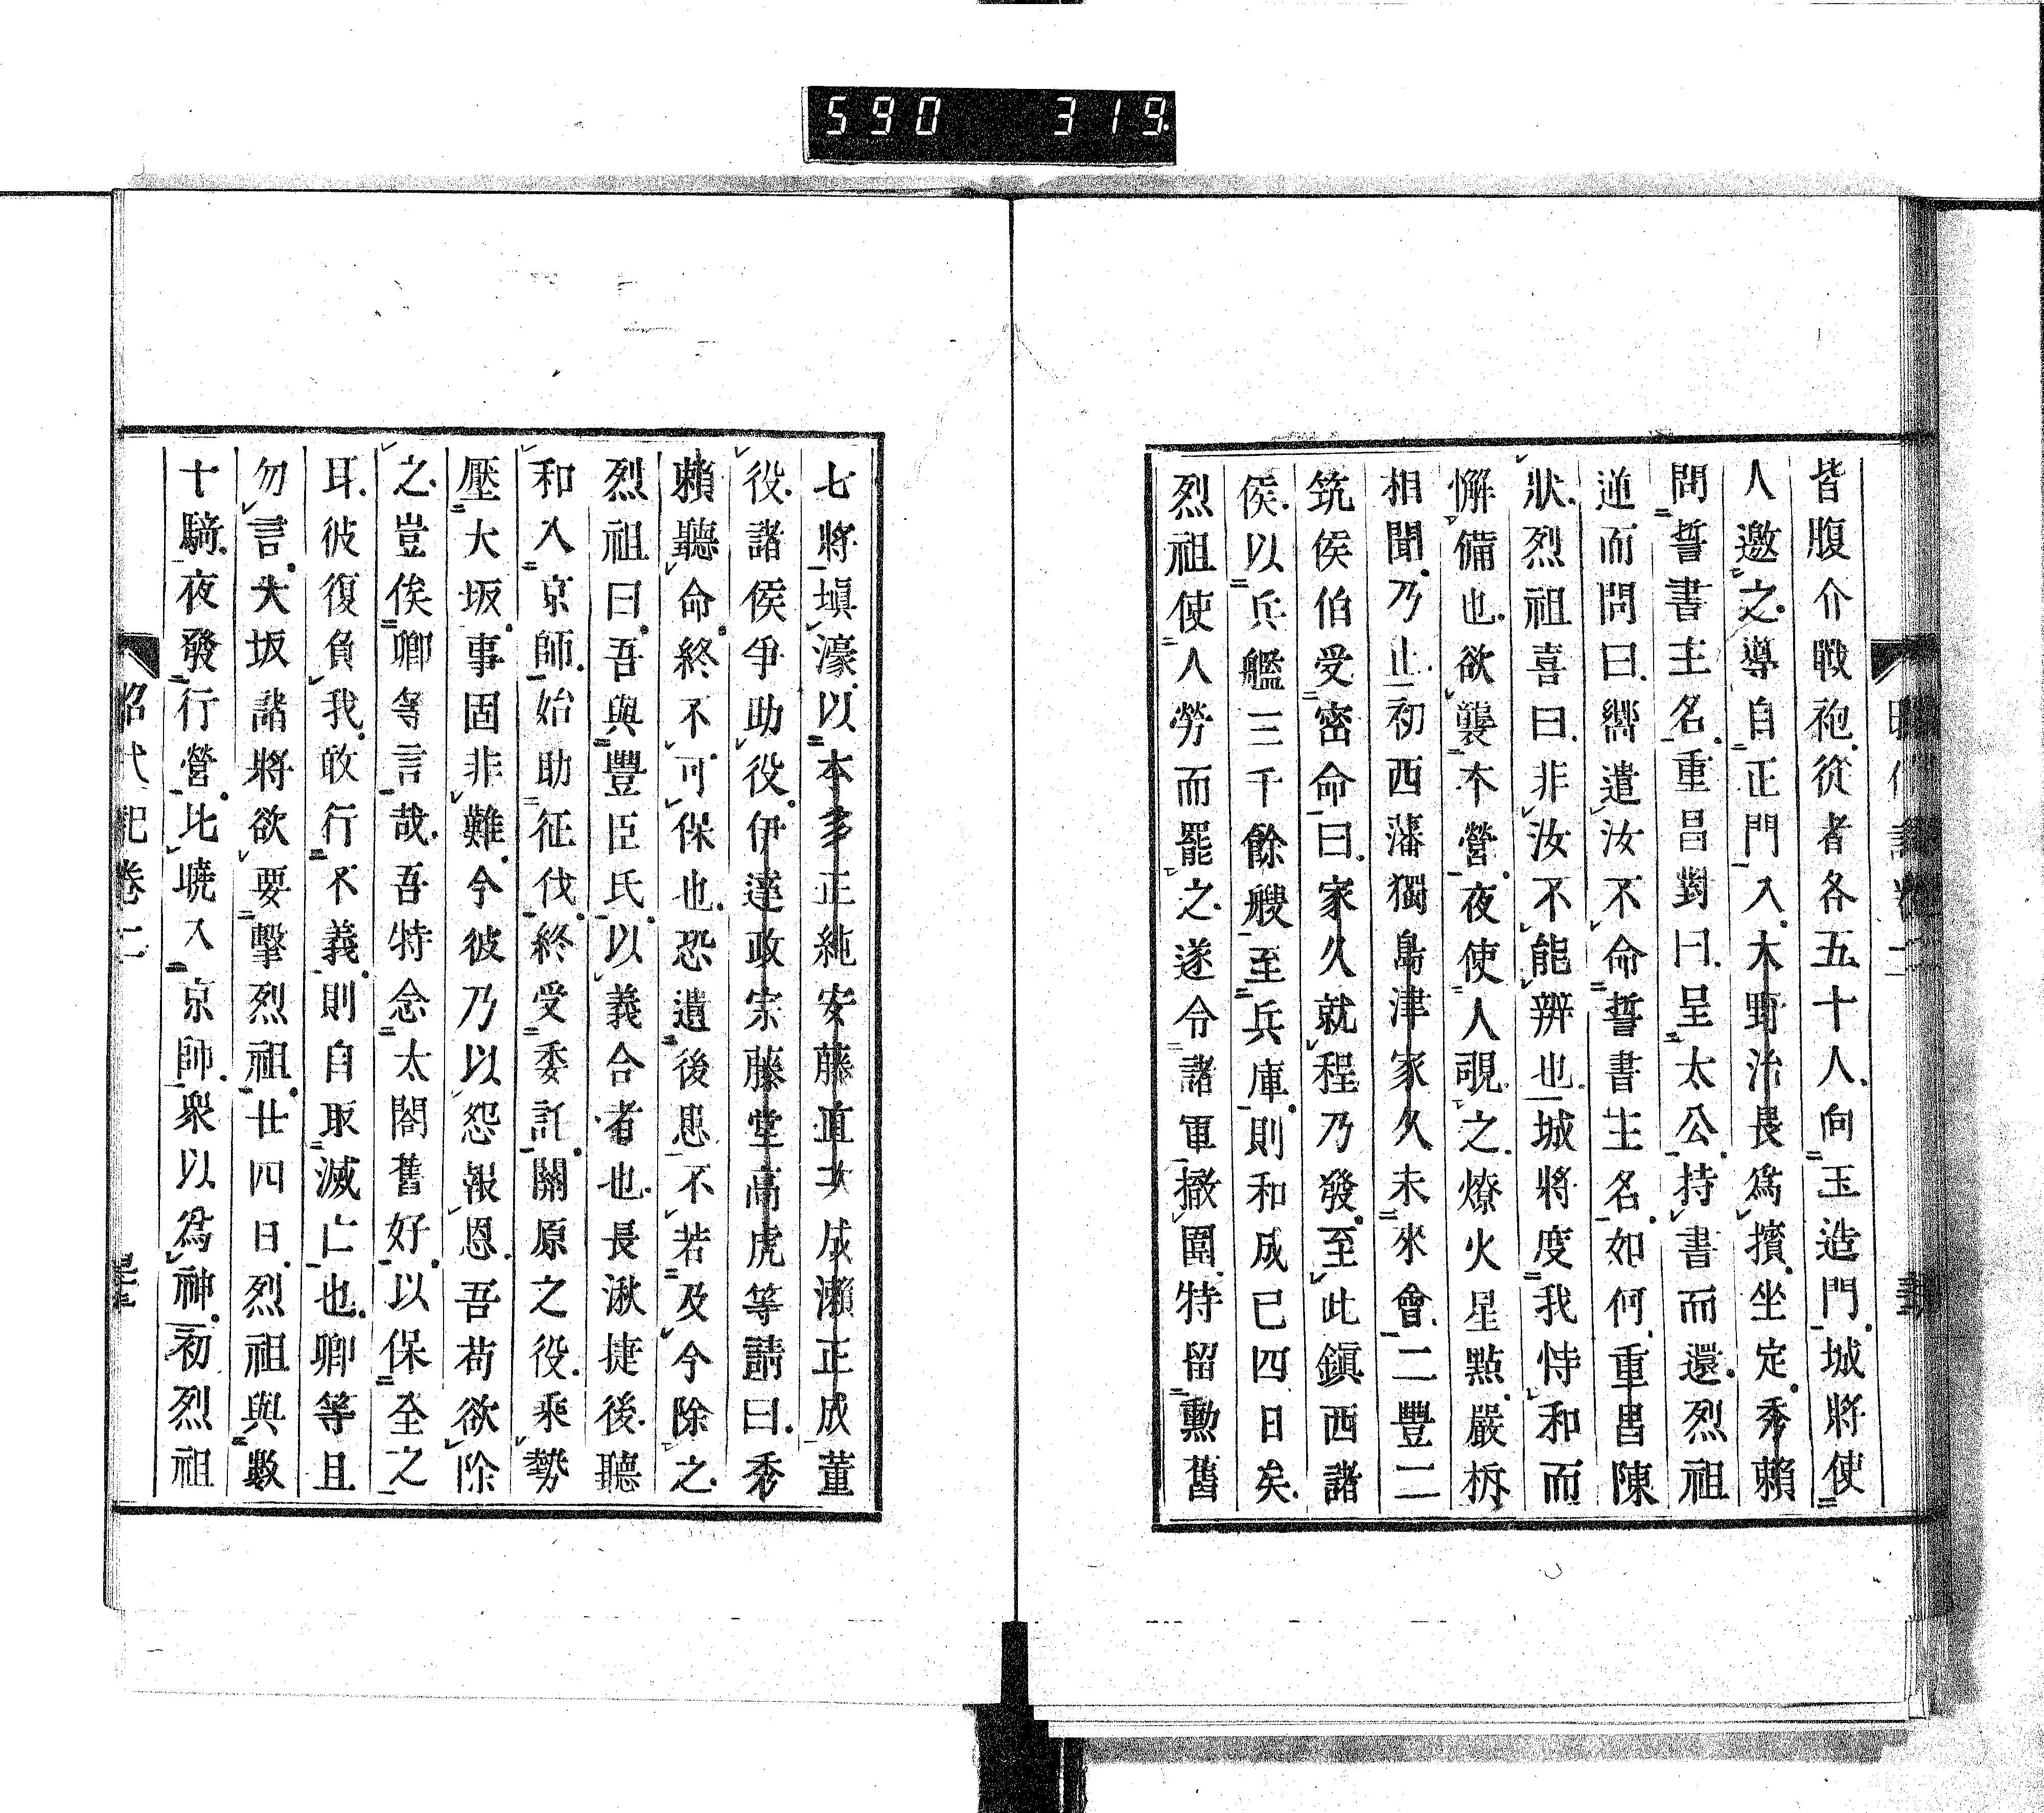 590 319
皆腹介戰袍從者各五十人向玉造門城將使
人邀之導自正門入大野治長爲擯坐定秀賴
問誓書主名重昌對曰呈太公持書而還烈祖
逆而問曰嚮遣汝不命誓書主名如何重昌陳
狀烈祖喜曰非汝不能辨也城將度我恃和而
懈備也欲襲本營夜使人覘之燎火星點嚴柝
相聞乃止初西藩獨島津家久未來會二豐二
筑侯伯受密命曰家久就程乃發至此鎭西諸
侯以兵艦三千餘艘至兵庫則和成已四日矣
烈祖使人勞而罷之遂令諸軍撤圍特留勳舊
七將塡濠以本多正純安藤直次成瀨正成董
役諸侯爭助役伊達政宗藤堂高虎等請曰秀
賴聽命終不可保也恐遺後患不若及今除之
烈祖曰吾與豐臣氏以義合者也長湫捷後聽
和入京師始助征伐終受委託關原之役乘勢
壓大坂事固非難今彼乃以怨報恩吾苟欲除
之豈俟卿等言哉吾特念太閤舊好以保全之
耳彼復負我敢行不義則自取滅亡也卿等且
勿言大坂諸將欲要擊烈祖廿四日烈祖與數
十騎夜發行營比曉入京師衆以爲神初烈祖
昭代記卷二